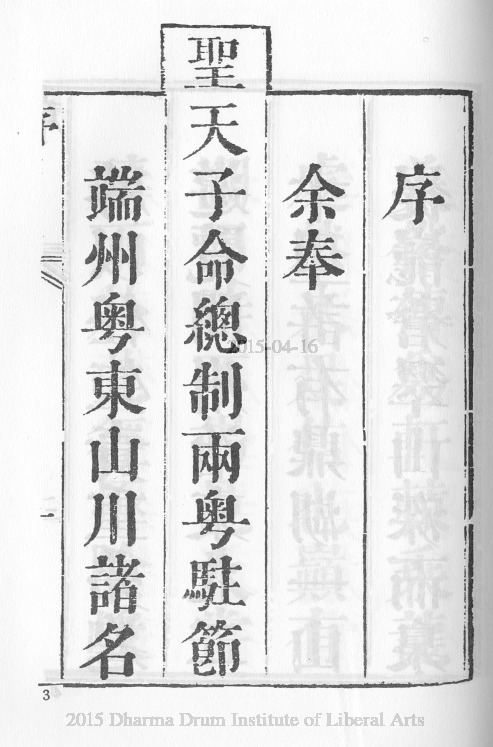 序
余奉
聖天子命總制兩粤駐節
端州粤東山川諸名
序
一
3
2015-04-16
2015 Dharma Drum Institute of Liberal Arts